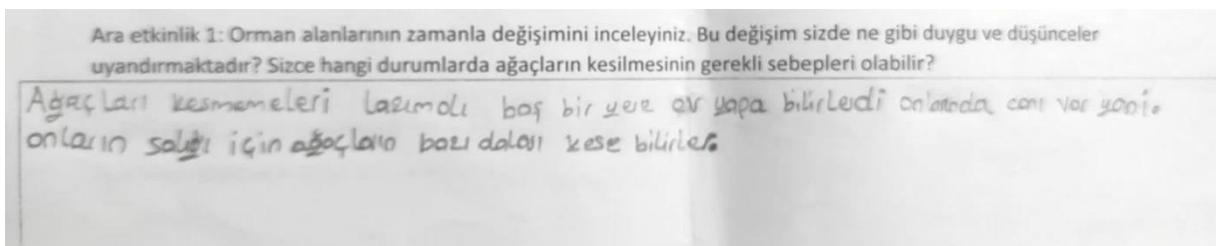 Ara etkinlik 1: Orman alanlarının zamanla değişimini inceleyiniz. Bu değişim sizde ne gibi duygu ve düşünceler
uyandırmaktadır? Sizce hangi durumlarda ağaçların kesilmesinin gerekli sebepleri olabilir?
Ağaçları kesmemeleri lazımdı boş bir yere ev yapa bilirlerdi onlarında canı var yani.
onların salığı için ağaçların bazı daları kese bilirler.